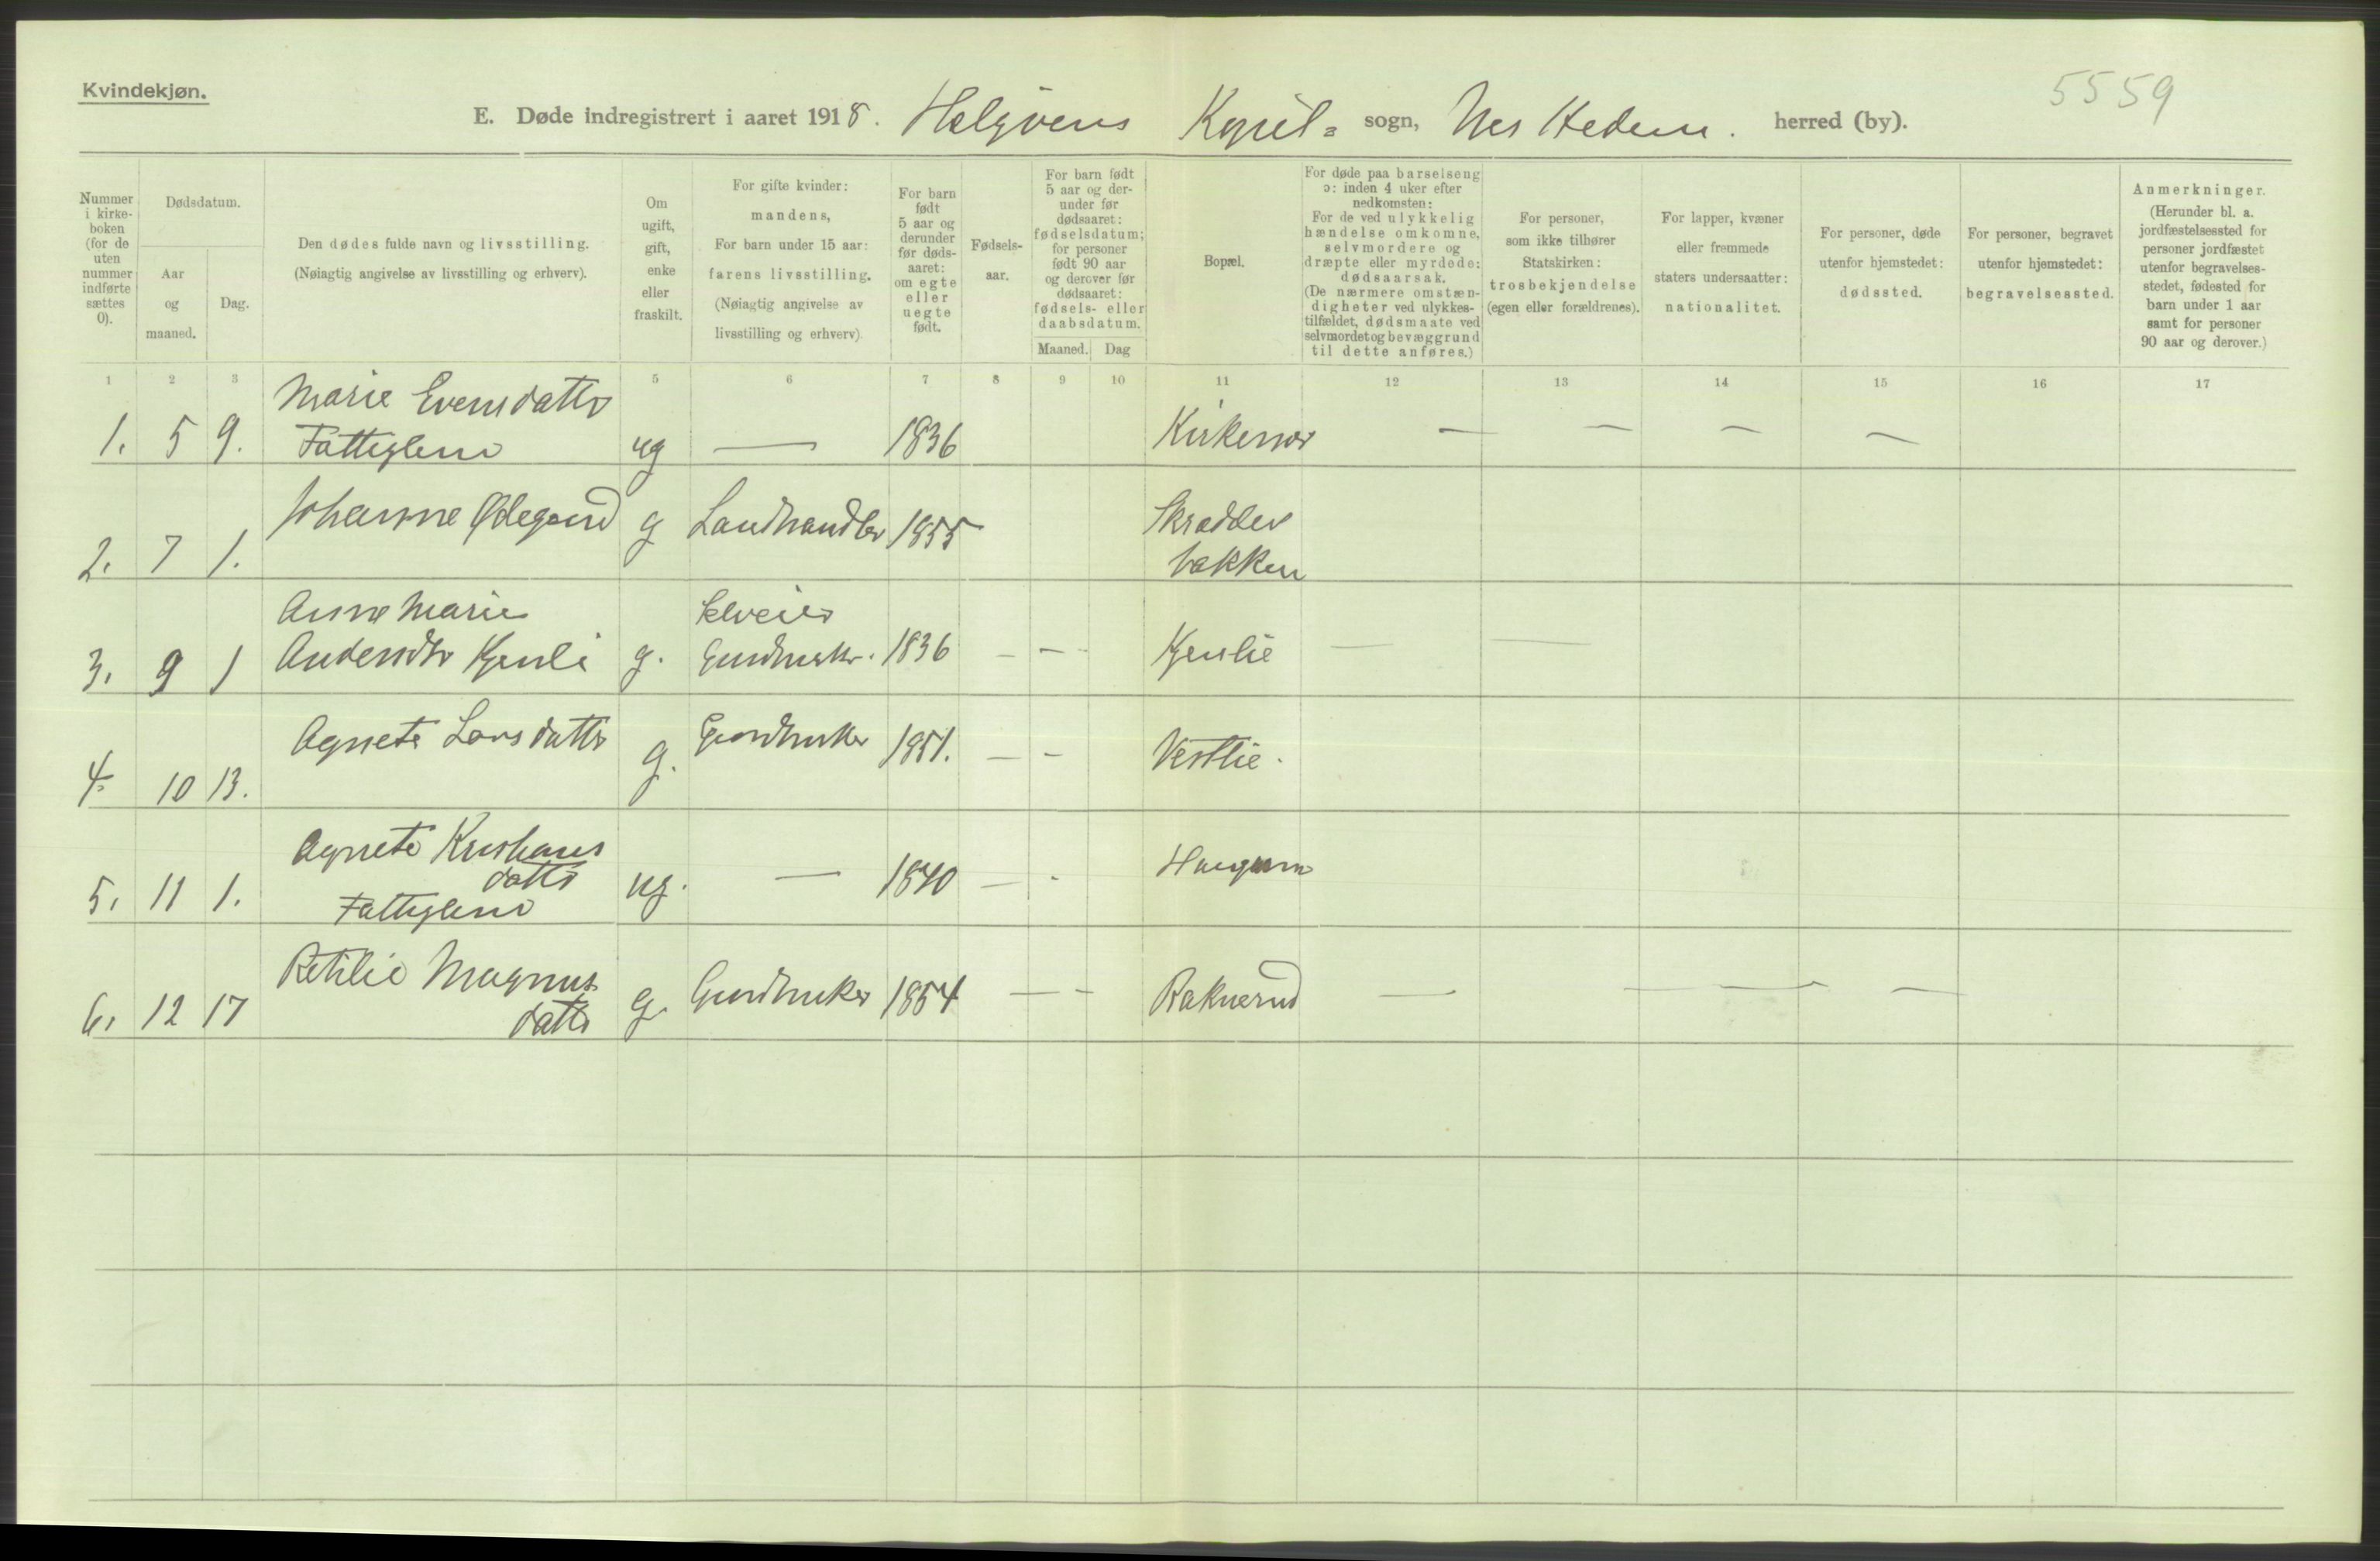 Kvindekjøn.
5559
E. Døde indregistrert i aaret 1918. Helgøens Kapel= sogn, Nes Hedem. herred (by).
Nummer i kirke- boken (for de uten nummer indførte sættes 0).
Dødsdatum.
Aar og maaned.
Dag.
Den dødes fulde navn og livsstilling.
(Nøiagtig angivelse av livsstilling og erhverv).
Om ugift, gift, enke eller fraskilt.
For gifte kvinder: mandens,
For barn under 15 aar: farens livsstilling.
(Nøiagtig angivelse av livsstilling og erhverv).
For barn født 5 aar og derunder før døds- aaret: om egte eller uegte født.
Fødsels- aar.
For barn født 5 aar og der- under før dødsaaret: fødselsdatum; for personer født 90 aar og derover før dødsaaret: fødsels- eller daabsdatum.
Maaned. Dag
Bopæl.
For døde paa barselseng ɔ: inden 4 uker efter nedkomsten:
For de ved ulykkelig hændelse omkomne, selvmordere og dræpte eller myrdede: dødsaarsak.
(De nærmere omstæn- digheter ved ulykkes- tilfældet, dødsmaate ved selvmordet og bevæggrund til dette anføres.)
For personer, som ikke tilhører Statskirken: trosbekjendelse (egen eller forældrenes).
For lapper, kvæner eller fremmede staters undersaatter: nationalitet.
For personer, døde utenfor hjemstedet: dødssted.
For personer, begravet utenfor hjemstedet: begravelsessted.
Anmerkninger.
(Herunder bl. a. jordfæstelsessted for personer jordfæstet utenfor begravelses- stedet, fødested for barn under 1 aar samt for personer 90 aar og derover.)
1 2 3 5 6 7 8 9 10 11 12 13 14 15 16 17
Marie Evensdatter
1. 5 9. Fattiglem ug — 1836 Kirkener — — — —
Johanne Ødegaard g Landhandler 1855 Skrædder
2. 7 1. bakken
Anne Marie Selveier
3. 9 1 Andersdtr Kjenli g. Gaardbruker. 1836 — — Kjenlie — —
Agnete Larsdatter Gaardbruker
4. 10 13. g. 1851. — — Vestlie.
Agnete Kristians
datter
5. 11 1. Fattiglem ug. — 1840 — -
Magnus
6. 12 17 datter g. Gaardbruker 1854 — — Baknerud — — — —